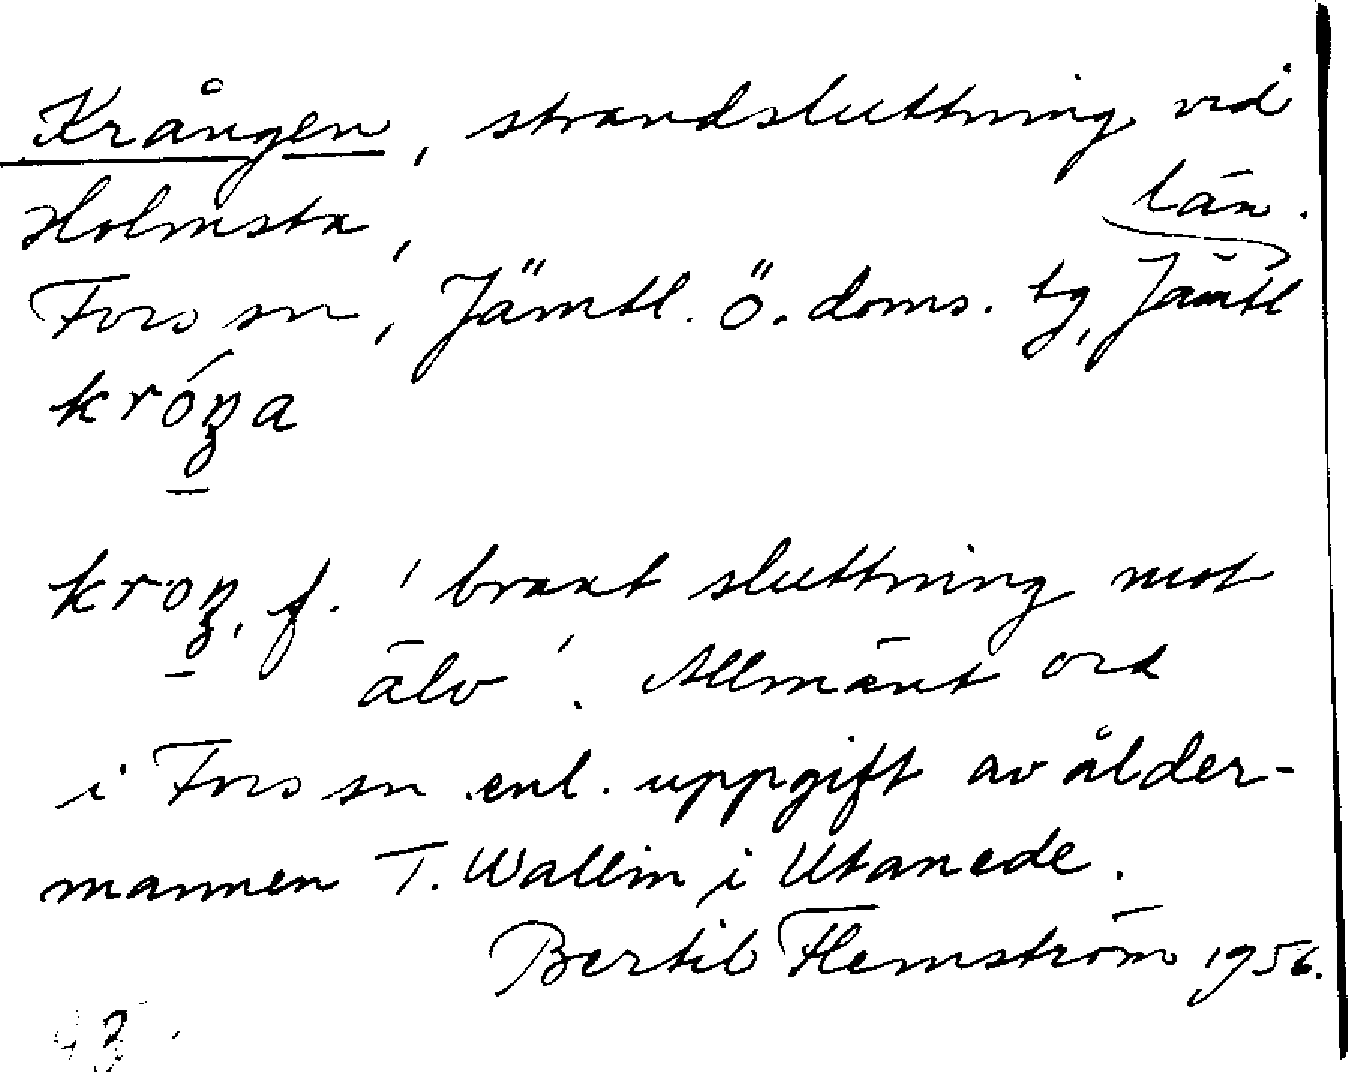 Krången, strandsluttning vid
Holmsta,
Fors sn, Jämtl. ö. doms. tg, Jämtl
län.
króŋa
kroŋ, f. 'brant sluttning mot
älv'. Allmänt ord
i Fors sn enl. uppgift av ålder-
mannen T. Wallin i Utanede.
Bertil Flemström 1956.